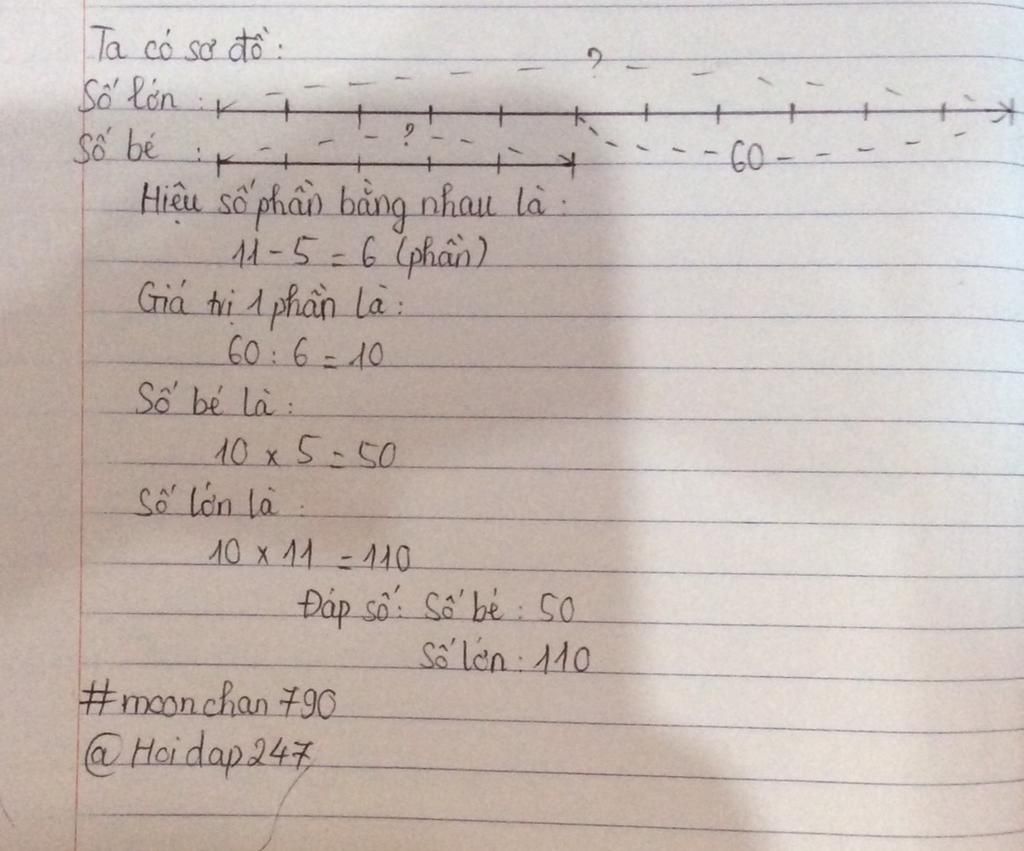 Ta có sơ đồ:
?
Số lớn :
?
Số bé :
60
Hiệu số phần bằng nhau là:
11 - 5 = 6 (phần)
Giá trị 1 phần là:
60 : 6 = 10
Số bé là:
10 x 5 = 50
Số lớn là:
10 x 11 = 110
Đáp số: Số bé : 50
Số lớn : 110
#moonchan790
@Hoidap247